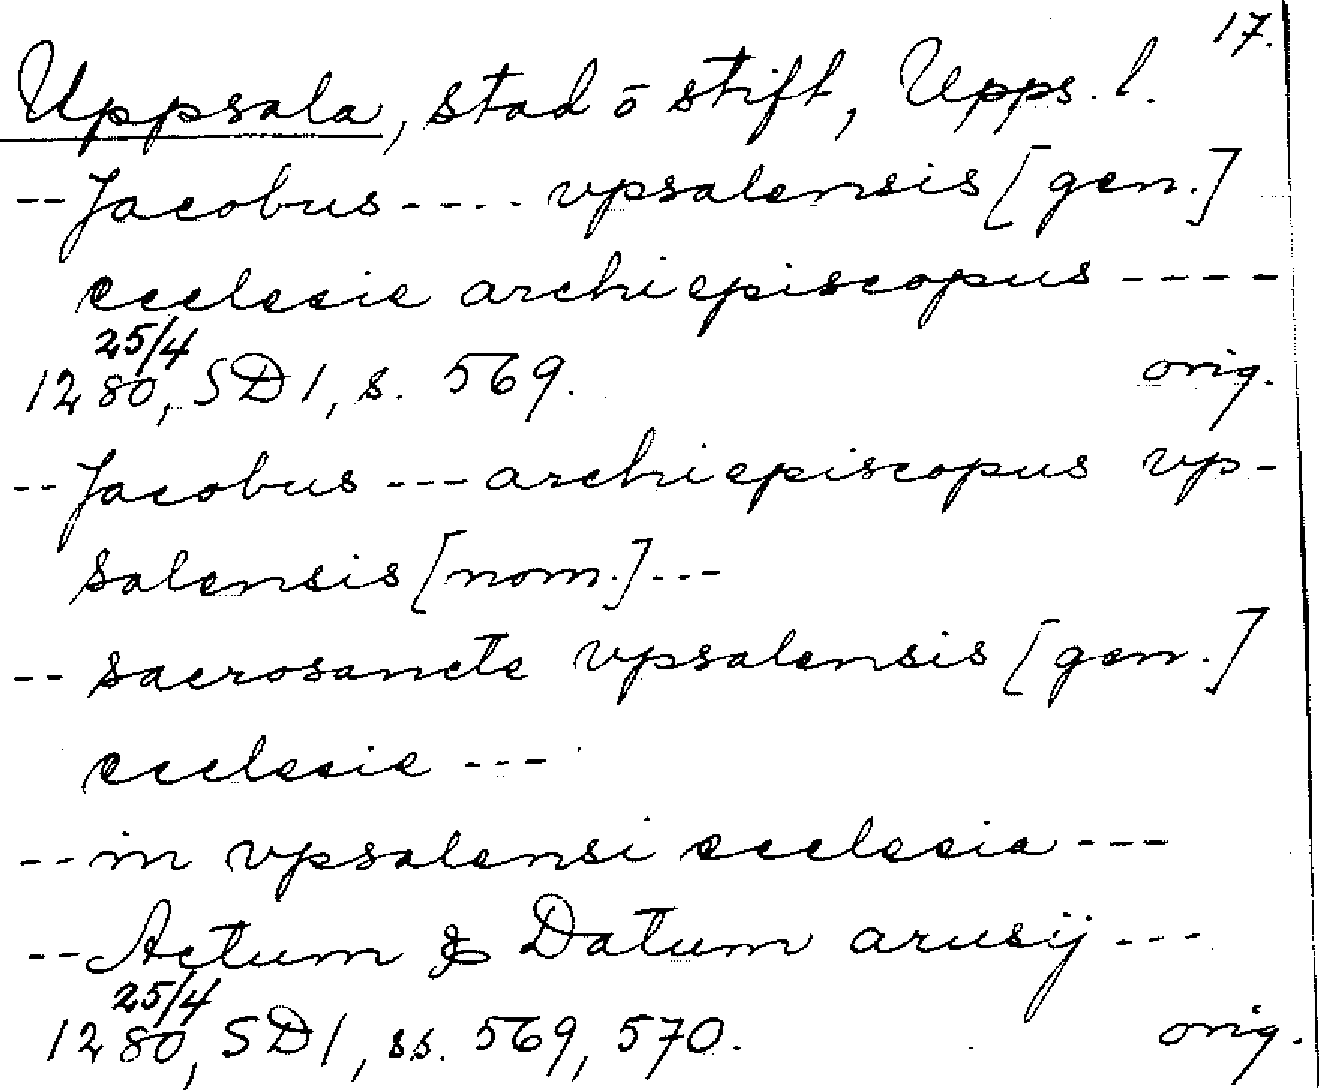 17.
Uppsala, stad o stift, Upps. l.
-- Jacobus ---- vpsalensis [gen.]
ecclesie archiepiscopus ----
25/4
1280, SD 1, s. 569. orig.
-- Jacobus --- archiepiscopus vp-
salensis [nom.] ---
-- sacrosancte vpsalensis [gen.]
ecclesie ---
-- in vpsalensi ecclesia ---
-- Actum & Datum arusij ---
25/4
1280, SD 1, ss. 569, 570. orig.